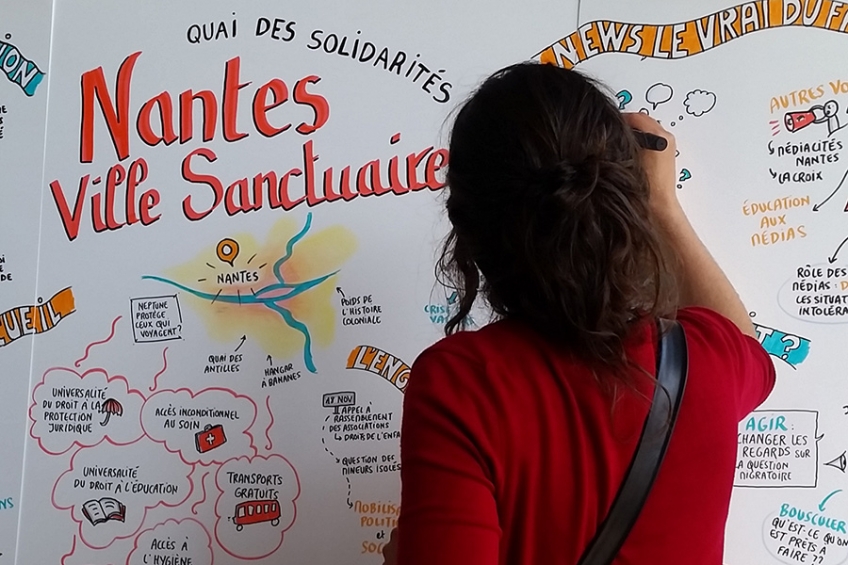 QUAI DES SOLIDARITÉS
Nantes
Ville Sanctuaire
NANTES
NEPTUNE
PROTÈGE
CEUX QUI
VOYAGENT?
POIDS DE
L'HISTOIRE
COLONIALE
QUAI DES
ANTILLES
HANGAR
À BANANES
UNIVERSALITÉ
DU DROIT À LA
PROTECTION
JURIDIQUE
ACCÈS INCONDITIONNEL
AU SOIN
UNIVERSALITÉ
DU DROIT À L'ÉDUCATION
TRANSPORTS
GRATUITS
ACCÈS À
L'HYGIÈNE
L'ENG
17 NOV
APPEL À
RASSEMBLEMENT
DES ASSOCIATIONS
DROITS DE L'ENFA
QUESTION DES
MINEURS ISOLÉS
MOBILIS
POLITI
et
SO
NEWS LE VRAI DU F
AUTRES VO
MÉDIACITÉS
NANTES
LA CROIX
ÉDUCATION
AUX
MÉDIAS
RÔLE DES
MÉDIAS : D
LES SITUAT
INTOLÉRA
T ?
AGIR :
CHANGER LES
REGARDS SUR
LA QUESTION
MIGRATOIRE
BOUSCULER
QU'EST-CE QU'ON
EST PRÊTS À
FAIRE ??
ION
UEIL